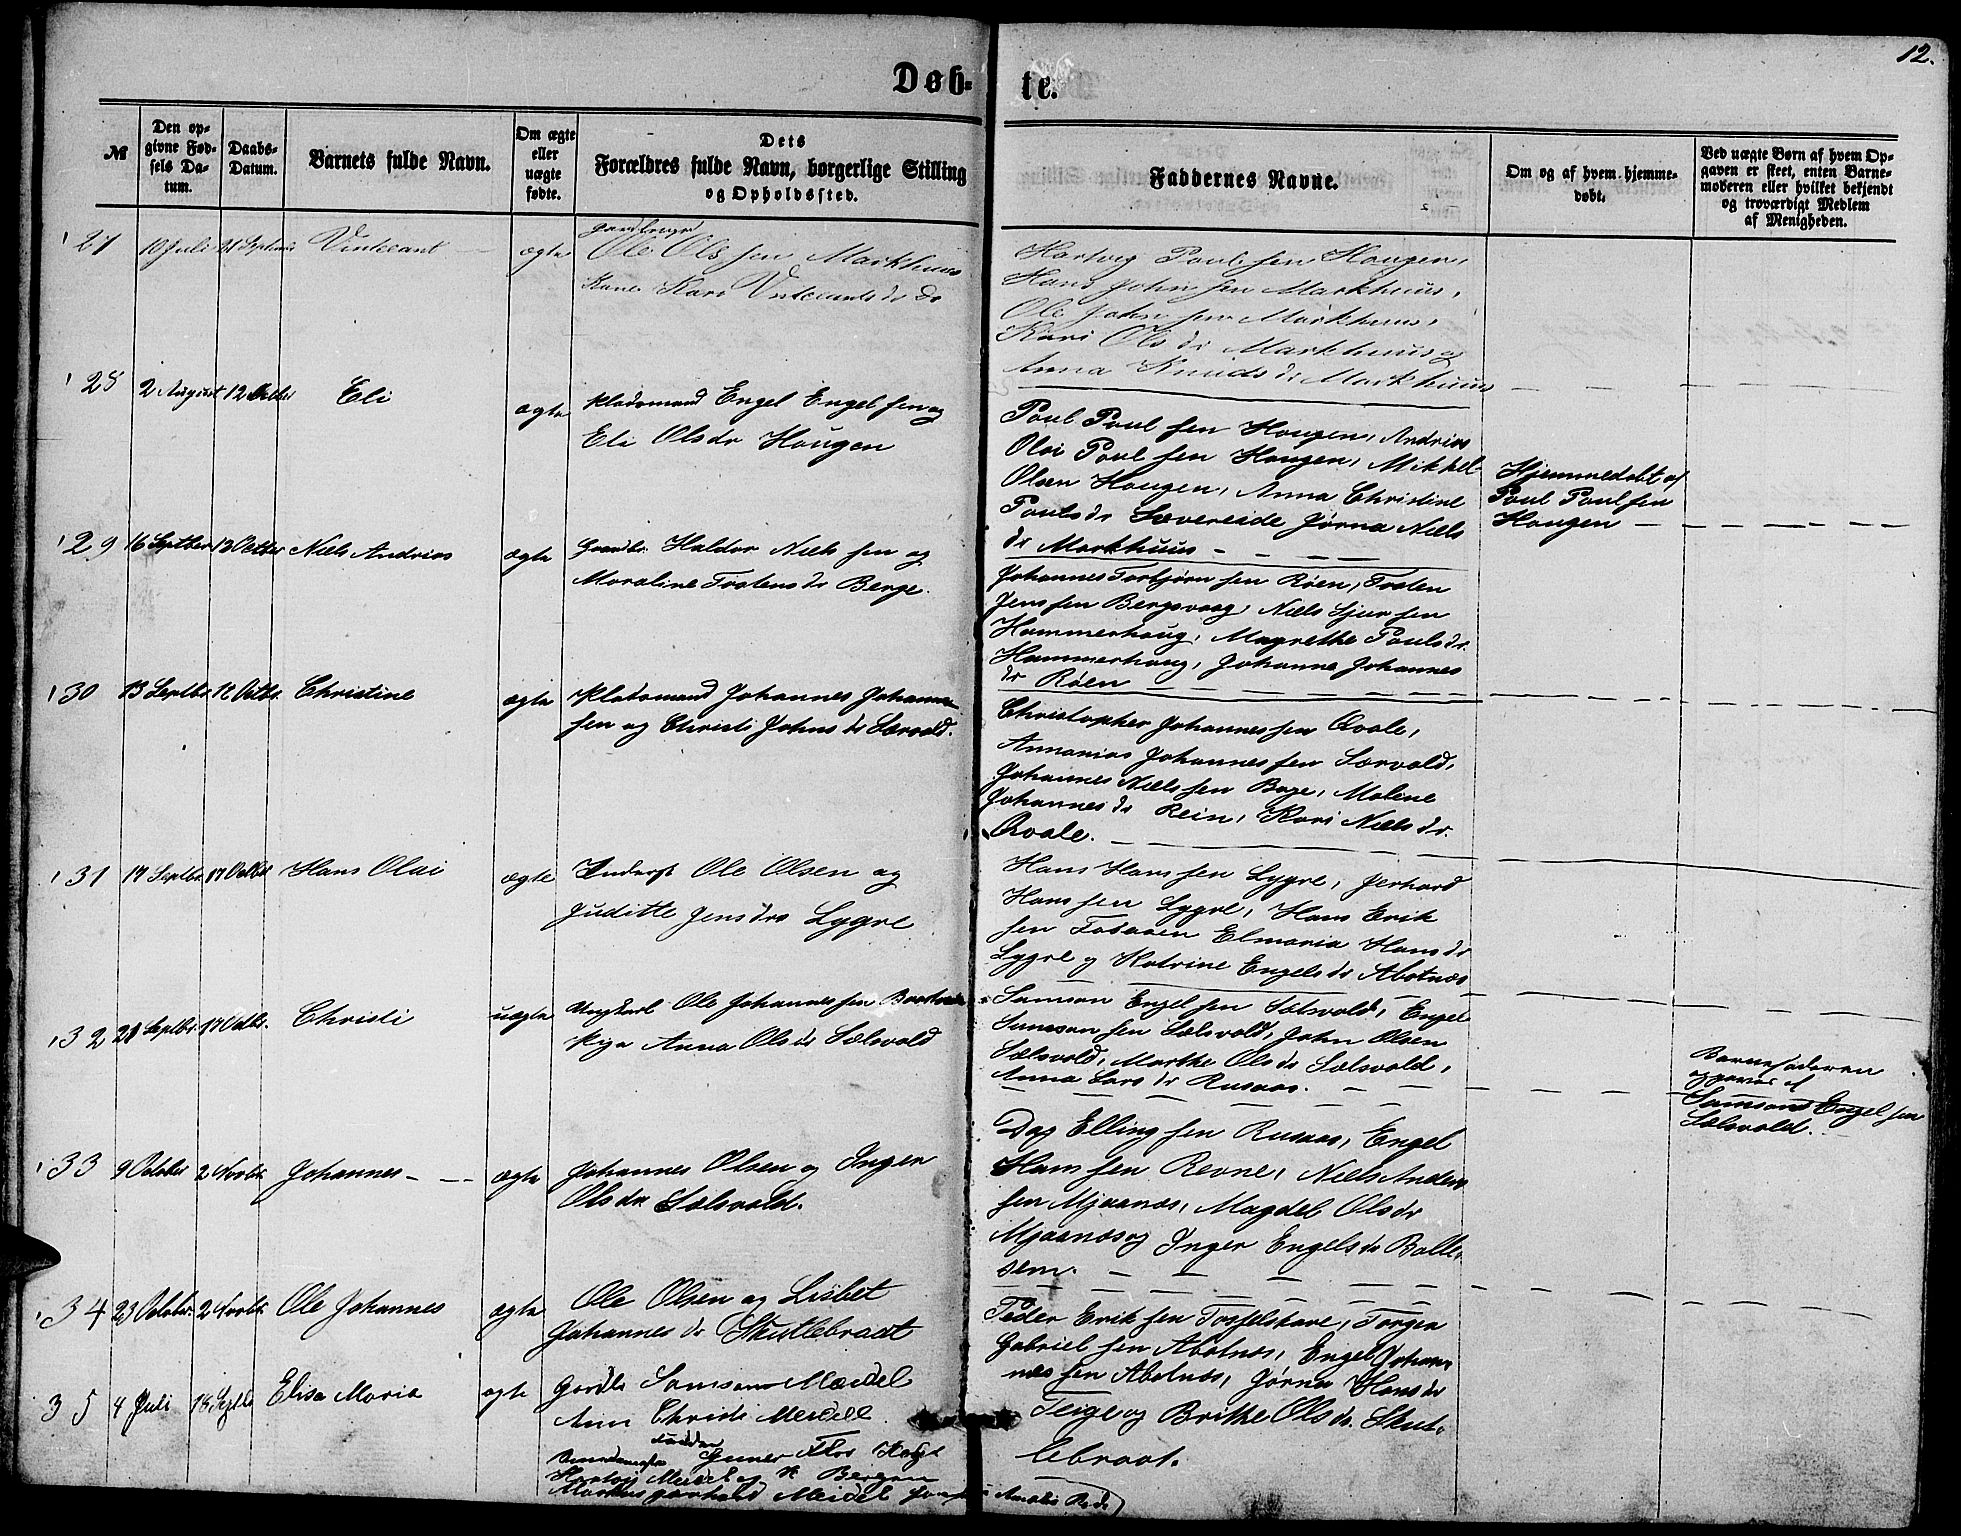 12.
Døb-
te.
№
Den op-
givne Fød-
sels Da-
tum.
Daabs-
Datum.
Barnets fulde Navn.
Om ægte
eller
uægte
fødte.
Dets
Forældres fulde Navn, borgerlige Stilling
og Opholdssted.
Faddernes Navne.
Om og af hvem hjemme-
døbt.
Ved uægte Børn af hvem Op-
gaven er skeet, enten Barne-
moderen eller hvilket bekjendt
og troværdigt Medlem
af Menigheden.
27 10 Juli 21 Septembr Vinceant ægte
Ole Olssen Markhuus
Kone Kari Vinceants dr do
Hartvig Poulssen Hougen,
Hans Johnssen Markhuus,
Ole Johnssen Markhuus,
Kari Ols dr Markhuus og
Anna Knuds dr Markhuus
28 2 August 12 Octbr Eli ægte
Pladsmand Engel Engelssen og
Eli Olsdr Hougen
Poul Poulssen Hougen, Andrias
Olai Poulssen Hougen, Mikkel
Olsen Hougen, Anna Christine
Pouls dr Sævereide Jørna Niels
dr Markhuus
Hjemmedøbt af
Poul Poulssen
Hougen
29 16 Septbr 12 Octbr Niels Andrias ægte
Gaardbr. Haldor Nielssen og
Moraline Tostens dr Berge.
Johannes Torbjørnssen Röen, Tosten
Jenssen Bergsvaag, Niels Sjurssen
Hammerhoug, Magrethe Pouls dr.
Hammerhoug, Johanne Johannes
dr Röen
30 13 Septbr 12 Octbr. Christine ægte
Pladsmand Johannes Johannes
sen og Christi Johns dr Sævold.
Christopher Johannessen Qvale,
Annanias Johannessen Særvold,
Johannes Nielssen Boge, Malene
Johannes dr Rein, Kari Niels dr.
Qvale.
31 17 Septbr 17 Octbr Hans Olai ægte
Inderst Ole Olsen og
Juditte Jensdr Lygre
Hans Hanssen Lygre, Jerhard
Hanssen Lygre, Hans Erik
sen Elmaria Hans dr
Lygre og Katrine Engels dr Abotnæs
32 21 Septbr 17 Octbr. Christi uægte
Ungkarl Ole Johannessen
Pige Anna Ols dr Sælsvold
Samson Engelssen Sælsvold, Engel
Samsonssen Sælsvold, John Olsen
Sælsvold, Marthe Ols dr Sælsvold,
Anna Lars dr Rusaas.
Barnefaderen
opgaves af
Samson Engelssen
Sælsvold.
33 9 October 2 Novbr Johannes ægte
Johannes Olsen og Inger
Olsdr Sælsvold.
Dag Ellingssen Rusaas, Engel
Hanssen Revne, Niels Anders
sen Mjaanæs, Magdel Ols dr
Mjaanæs og Inger Engels dr Balle,
sem.
34 23 October 2 Novbr Ole Johannes ægte
Ole Olsen og Lisbet
Johannes dr Skutlebraat
Peder Erikssen Torgen
Gabrielssen Abotnæs, Engel Johan
nessen Abotnæs, Jørna Hans dr
Teige og Brithe Ols dr. Skut-
lebraat.
35 4 Juli 18 Septbr Elisa Maria ægte
Gardbr Samson Meidel
Ane Christi Meidell
Fadder
Gunner
Hartvig Meidel og Bergen
Markus Gerhard Meidel